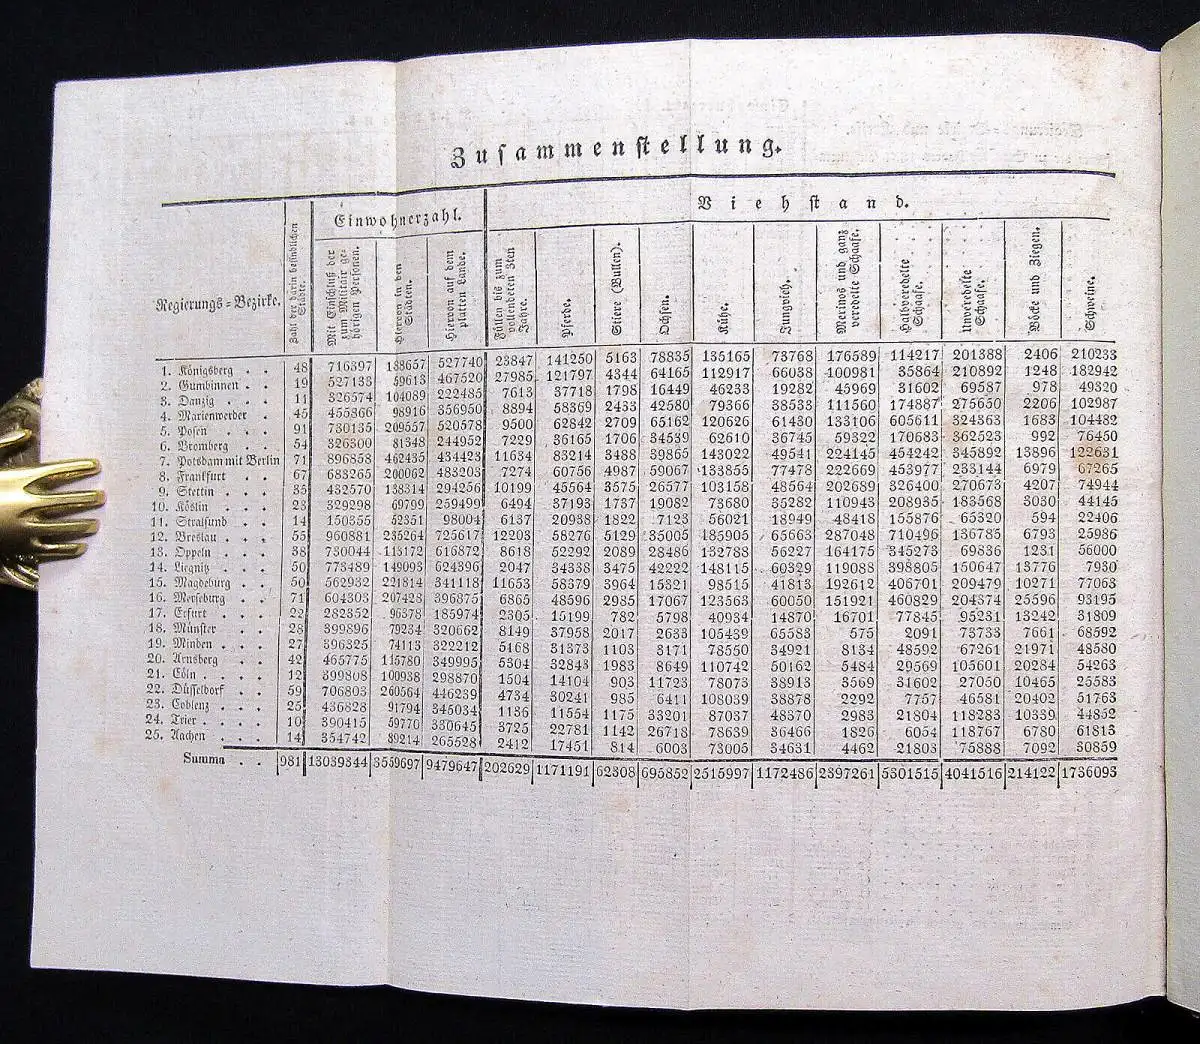 Zusammenstellung.
Regierungs-Bezirke.
Zahl der darin befindlichen Städte.
Einwohnerzahl.
Mit Einschluß der zum Militair gehörigen Personen.
Hiervon in den Städten.
Hiervon auf dem platten Lande.
Viehstand.
Füllen bis zum vollendeten 3ten Jahre.
Pferde.
Stiere (Bullen).
Ochsen.
Kühe.
Jungvieh.
Merinos und ganz veredelte Schaafe.
Halbveredelte Schaafe.
Unveredelte Schaafe.
Böcke und Ziegen.
Schweine.
1. Königsberg . . 48 716397 188657 527740 23847 141250 5163 78835 135165 73768 176589 114217 201388 2406 210233
2. Gumbinnen . . 19 527133 59613 467520 27985 121797 4344 64165 112917 66038 100981 35864 210892 1248 182942
3. Danzig . . . 11 326574 104089 222485 7613 37718 1798 16449 46233 19282 45969 31602 69587 978 49320
4. Marienwerder . 45 455866 98916 356950 8894 58369 2433 42580 79366 38533 111560 174887 275650 2206 102987
5. Posen . . . 91 730135 209557 520578 9500 62842 2709 65162 120626 61430 133106 605611 324363 1683 104482
6. Bromberg . . 54 326300 81348 244952 7229 36165 1706 34539 62610 36745 59322 170683 362523 992 76450
7. Potsdam mit Berlin 71 896858 462435 434423 11634 83214 3488 39865 143022 49541 224145 454242 345892 13896 122631
8. Frankfurt . . 67 683265 200062 483203 7274 60756 4987 59067 133855 77478 222669 453977 233144 6979 67265
9. Stettin . . . 35 432570 138314 294256 10199 45564 3575 26577 103158 48564 202689 326400 270673 4207 74944
10. Köslin . . . 23 329298 69799 259499 6494 37193 1737 19082 73680 35282 110943 208935 183568 3030 44145
11. Stralsund . . 14 150355 52351 98004 6137 20938 1822 7123 56021 18949 48418 155876 65320 594 22406
12. Breslau . . . 55 960881 235264 725617 12203 58276 5129 35005 185905 65663 287048 710496 136785 6793 25986
13. Oppeln . . . 38 730044 113172 616872 8618 52292 2089 28486 132788 56227 164175 345273 69836 1231 56000
14. Liegnitz . . . 50 773489 149093 624396 2047 34338 3475 42222 148115 60329 119088 398805 150647 13776 7930
15. Magdeburg . . 50 562932 221814 341118 11653 58379 3964 15321 98515 41813 192612 406701 209479 10271 77063
16. Merseburg . . 71 604303 207428 396875 6865 48596 2985 17067 123563 60050 151921 460829 204374 25596 93195
17. Erfurt . . . 22 282352 96378 185974 2305 15199 782 5798 40934 14870 16701 77845 95231 13242 31809
18. Münster . . 28 399896 79234 320662 8149 37958 2017 2633 105439 65583 575 2091 73733 7661 68592
19. Minden . . . 27 396325 74113 322212 5168 31373 1103 3171 78550 34921 8134 48592 67261 21971 48580
20. Arnsberg . . 42 465775 115780 349995 5304 32843 1983 8649 110742 50162 5484 29569 105601 20284 54263
21. Cöln . . . . 12 399808 100938 298870 1504 14104 903 11723 78073 38913 3569 31602 27050 10465 25583
22. Düsseldorf . . 59 706803 260564 446239 4734 30241 985 6411 108039 38878 2292 7757 46581 20402 51763
23. Coblenz . . . 25 436828 91794 345034 1136 11554 1175 33201 87037 48370 2983 21804 118283 10339 44852
24. Trier . . . . 10 390415 59770 330645 3725 22781 1142 26718 78639 36466 1826 6054 118767 6780 61813
25. Aachen . . . 14 354742 89214 265528 2412 17451 814 6003 73005 34631 4462 21803 75888 7092 30859
Summa . . 981 13039344 3559697 9479647 202629 1171191 62308 695852 2515997 1172486 2397261 5301515 4041516 214122 1736093